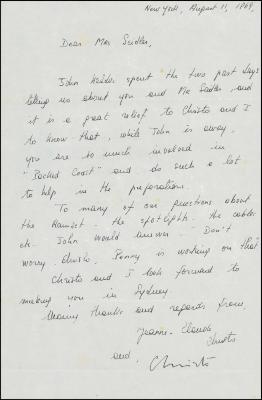 New York, August 11, 1969.
Dear Mrs Sadler,
John Kaldor spent the two past days
telling us about you and Mr Sadler, and
it is a great relief to Christo and I
to know that, while John is away,
you are so much involved in
"Packed Coast" and do such a lot
to help in the preparations.
To many of our questions about
the Ramset - the spotlights - the cables
etc. John would answer "Don't
worry, Christo, Penny is working on that
Christo and I look forward to
meeting you in Sydney.
Many thanks and regards from,
Jeanne-Claude
Christo
and. Christo